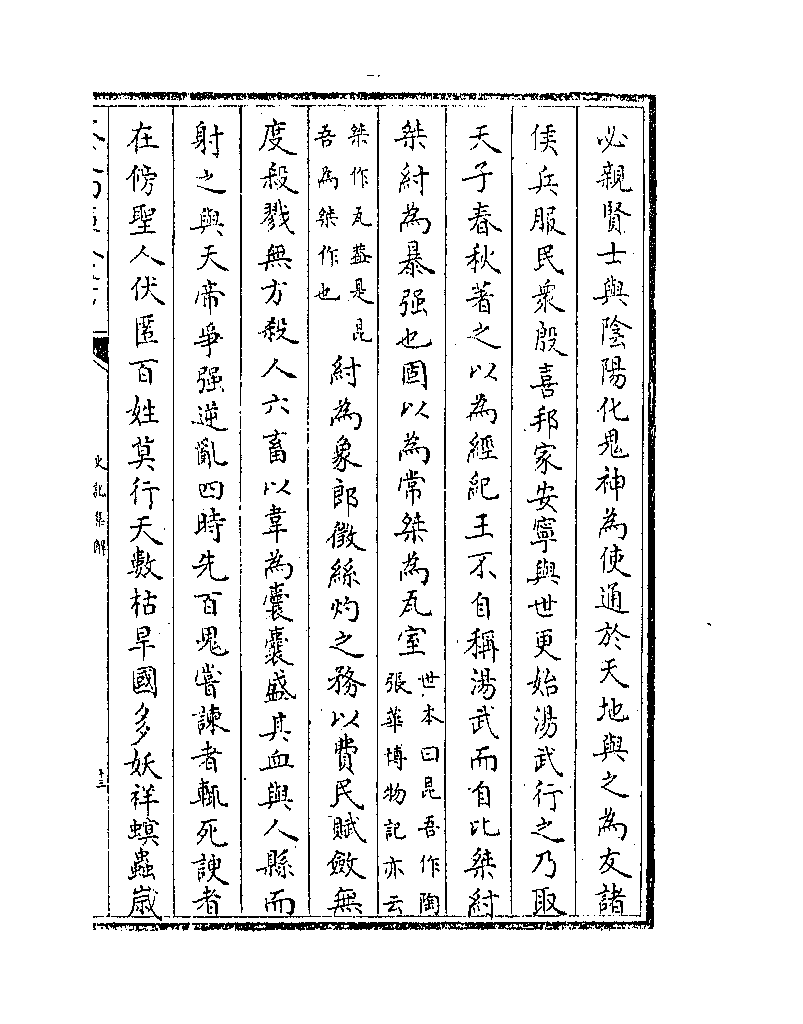 必親賢士與陰陽化鬼神為使通於天地與之為友諸
侯兵服民衆殷喜邦家安寧與世更始湯武行之乃取
天子春秋著之以為經紀王不自稱湯武而自比桀紂
桀紂為暴强也固以為常桀為瓦室世本曰昆吾作陶
張華博物記亦云
桀作瓦蓋是昆
吾為桀作也
紂為象郎徵絲灼之務以費民賦斂無
度殺戮無方殺人六畜以韋為囊囊盛其血與人縣而
射之與天帝爭强逆亂四時先百鬼嘗諫者輒死諛者
在傍聖人伏匿百姓莫行天數枯旱國多妖祥螟蟲歲
史記集解
十三